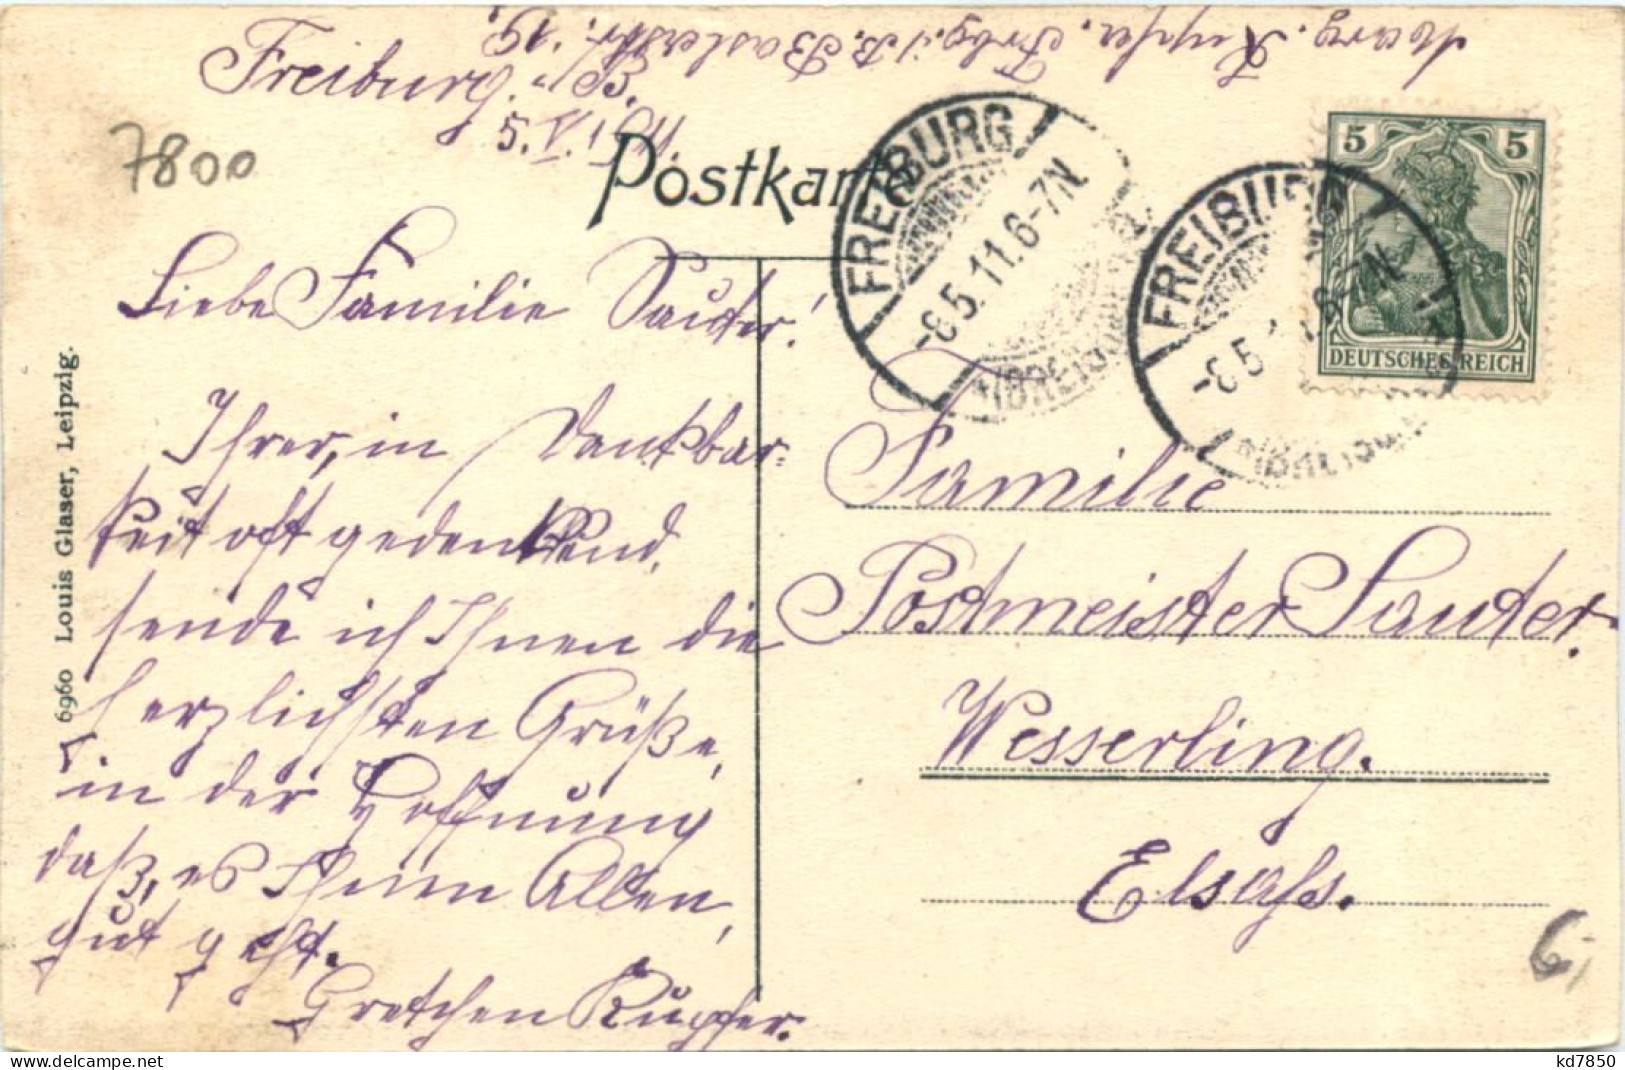 Marg. Kupfer. Frbg. i/B. Baslerstr. 19.
Freiburg.
5.V.11.
7800
Postkarte
FREIBURG
-8.5.11.6-7N
(BREISGAU)
FREIBURG
-8.5.
5 5
DEUTSCHES REICH
Liebe Familie Sauter!
Ihrer, in Dankbar-
keit oft gedenkend,
sende ich Ihnen die
herzlichsten Grüße,
in der Hoffnung
daß, es Ihnen Allen,
gut geht.
Gretchen Kupfer.
Familie
Postmeister Sauter.
Wesserling.
Elsaß.
6,-
6960 Louis Glaser, Leipzig.
kd7850